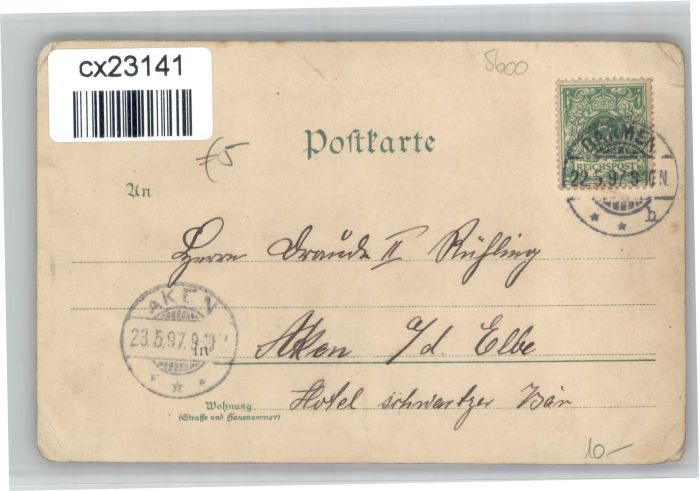 cx23141
5600
Postkarte
F5
REICHSPOST
BARMEN
22.5.97.9-10N.
* * h
An
Herrn Draude II Rühling
AKEN
23.5.97.9-10V.
* * *
In Aken a/d. Elbe
Wohnung Hotel schwartzer Bär
(Straße und Hausnummer)
10.-